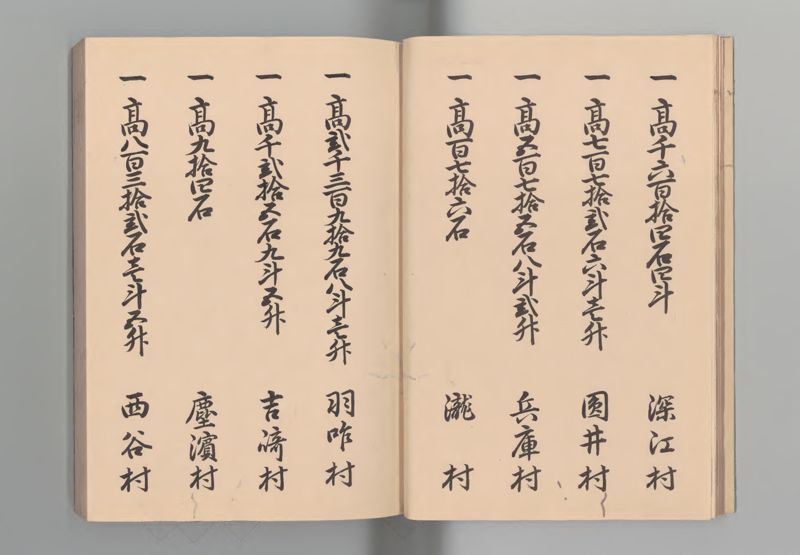 一 高千六百拾四石四斗 深江村
一 高七百七拾弐石六斗壱升 圓井村
一 高五百七拾五石八斗弐升 兵庫村
一 高百七拾六石 瀧村
一 高弐千三百九拾九石八斗壱升 羽咋村
一 高千弐拾五石九斗五升 吉崎村
一 高九拾四石 塵濱村
一 高八百三拾弐石壱斗五升 西谷村